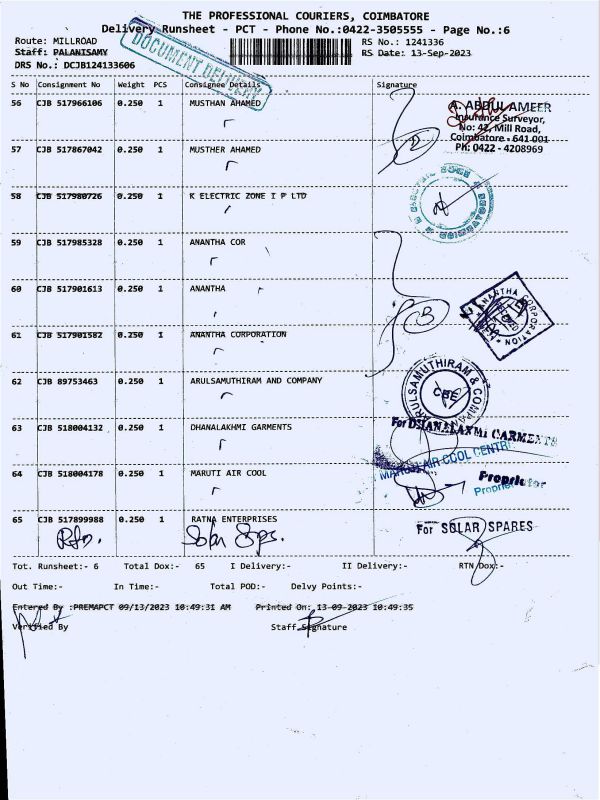 THE PROFESSIONAL COURIERS, COIMBATORE
Delivery Runsheet - PCT - Phone No.:0422-3505555 - Page No.:6
Route: MILLROAD
RS No.: 1241336
Staff: PALANISAMY
RS Date: 13-Sep-2023
DRS No.: DCJB124133606
DOCUMENT DELIVERY
S No Consignment No Weight PCS Consignee Details Signature
56 CJB 517966106 0.250 1 MUSTHAN AHAMED
A. ABDUL AMEER
Insurance Surveyor,
No: 42, Mill Road,
Coimbatore - 641 001
Ph: 0422 - 4208969
57 CJB 517867042 0.250 1 MUSTHER AHAMED
58 CJB 517980726 0.250 1 K ELECTRIC ZONE I P LTD
59 CJB 517985328 0.250 1 ANANTHA COR
60 CJB 517901613 0.250 1 ANANTHA
ANANTHA CORPORATION
61 CJB 517901582 0.250 1 ANANTHA CORPORATION
62 CJB 89753463 0.250 1 ARULSAMUTHIRAM AND COMPANY
ARULSAMUTHIRAM & COMPANY
CBE
63 CJB 518004132 0.250 1 DHANALAKHMI GARMENTS
For DHANALAXMI GARMENTS
64 CJB 518004178 0.250 1 MARUTI AIR COOL
MARUTI AIR COOL CENTRE
Proprietor
Proprietor
65 CJB 517899988 0.250 1 RATNA ENTERPRISES
For SOLAR SPARES
Tot. Runsheet:- 6 Total Dox:- 65 I Delivery:- II Delivery:- RTN Dox:-
Out Time:- In Time:- Total POD:- Delvy Points:-
Entered By :PREMAPCT 09/13/2023 10:49:31 AM Printed On: 13-09-2023 10:49:35
Verified By Staff Signature